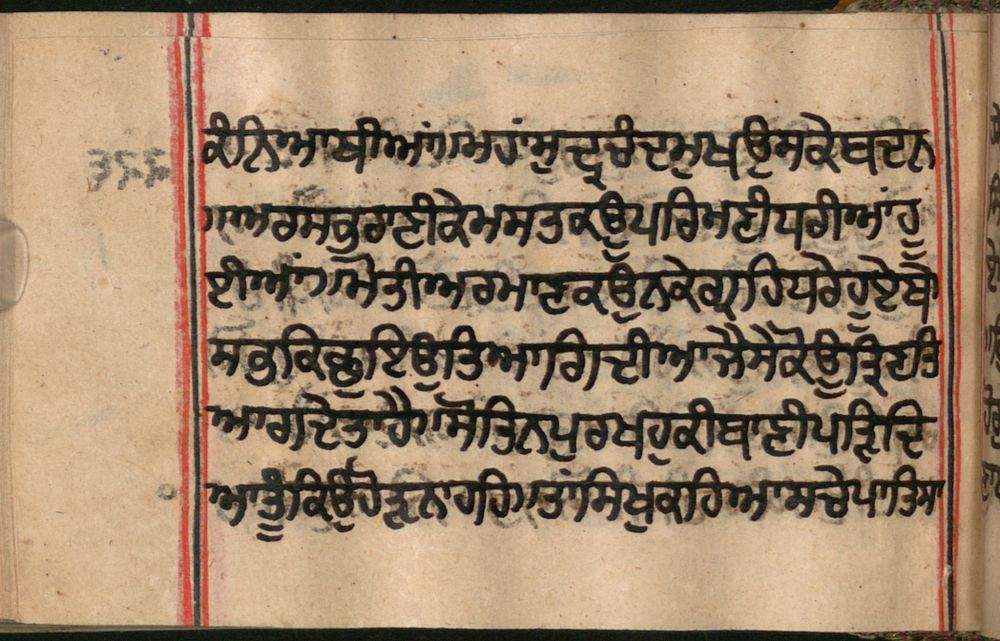 ਕੰਨਿਆ ਥੀਆਂ॥ਮਹਾਂਸੁਦ੍ਰ ਚੰਦ ਮੁਖ ਉਸ ਕੇ ਬਦਨ
॥ਅਰ ਸਭੁ ਰਾਣੀ ਕੈ ਮਸਤਕ ਊਪਰਿ ਮਣੀ ਧਰੀਆਂ ਹੂ
ਈਆਂ॥ਮੋਤੀ ਅਰ ਮਾਣਕ ਉਨ ਕੇ ਗ੍ਰਹਿ ਧਰੇ ਹੂਏ ਥੇ॥
ਸਭੁ ਕਿਛੁ ਇਉ ਤਿਆਗਿ ਦੀਆ ਜੈਸੇ ਕੋਊ ਤ੍ਰਿਣ ਤਿ
ਆਗ ਦੇਤਾ ਹੈ॥ਸੋ ਤਿਨ ਪੁਰਖਹੁ ਕੀ ਬਾਣੀ ਪੜਿ ਦਿ
ਆ ਤੂੰ ਕਿਉ ਹੋੜਨਾ ਹਹਿ॥ਤਾਂ ਸਿਖੁ ਕਹਿਆ ਸਚੇ ਪਾਤਿਸਾ